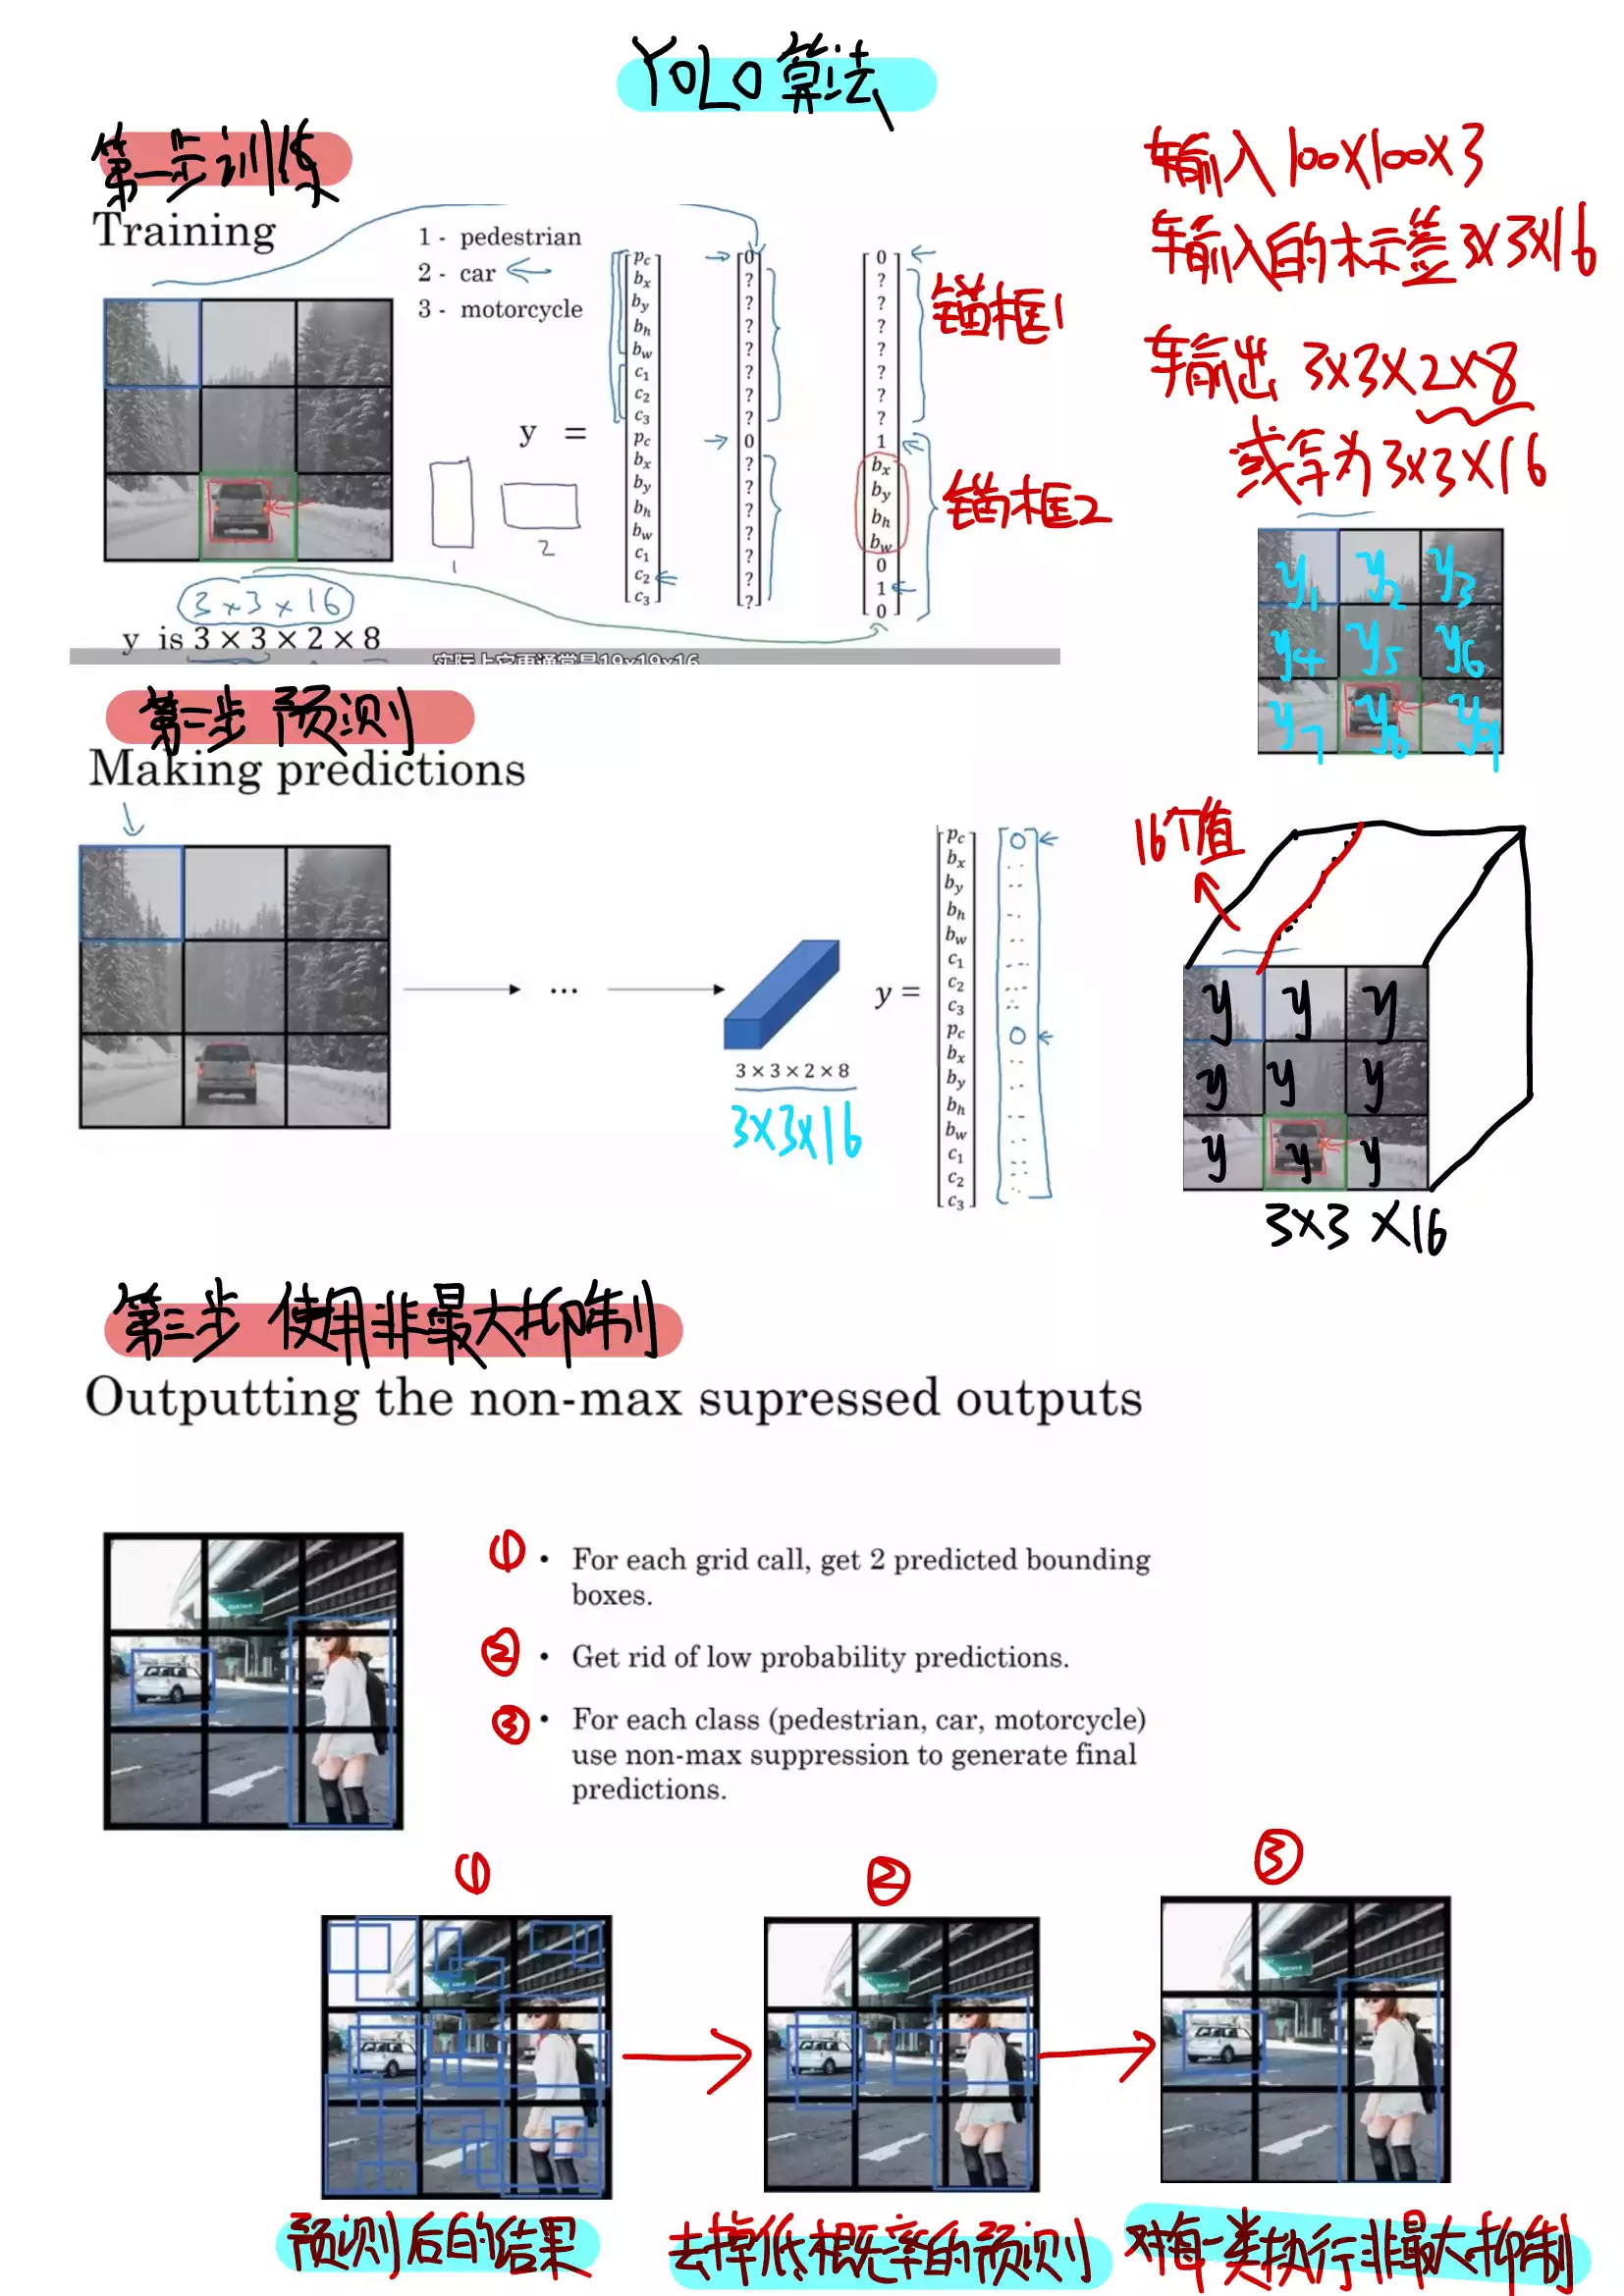 YOLO算法
第一步训练
Training
1 - pedestrian
2 - car
3 - motorcycle
y =
p_c
b_x
b_y
b_h
b_w
c_1
c_2
c_3
p_c
b_x
b_y
b_h
b_w
c_1
c_2
c_3
0
?
?
?
?
?
?
?
0
?
?
?
?
?
?
?
0
?
?
?
?
?
?
?
1
b_x
b_y
b_h
b_w
0
1
0
锚框1
锚框2
1
2
3×3×16
y is 3 × 3 × 2 × 8
实际上它更通常是19x19x16
输入100×100×3
输入的标签3×3×16
输出 3×3×2×8
或写为3×3×16
y1 y2 y3
y4 y5 y6
y7 y8 y9
第二步 预测
Making predictions
...
3 × 3 × 2 × 8
3×3×16
y =
p_c
b_x
b_y
b_h
b_w
c_1
c_2
c_3
p_c
b_x
b_y
b_h
b_w
c_1
c_2
c_3
0
0
16个值
y y y
y y y
y y y
3×3×16
第三步 使用非最大抑制
Outputting the non-max supressed outputs
① • For each grid call, get 2 predicted bounding
boxes.
② • Get rid of low probability predictions.
③ • For each class (pedestrian, car, motorcycle)
use non-max suppression to generate final
predictions.
①
②
③
预测后的结果
去掉低概率的预测
对每一类执行非最大抑制